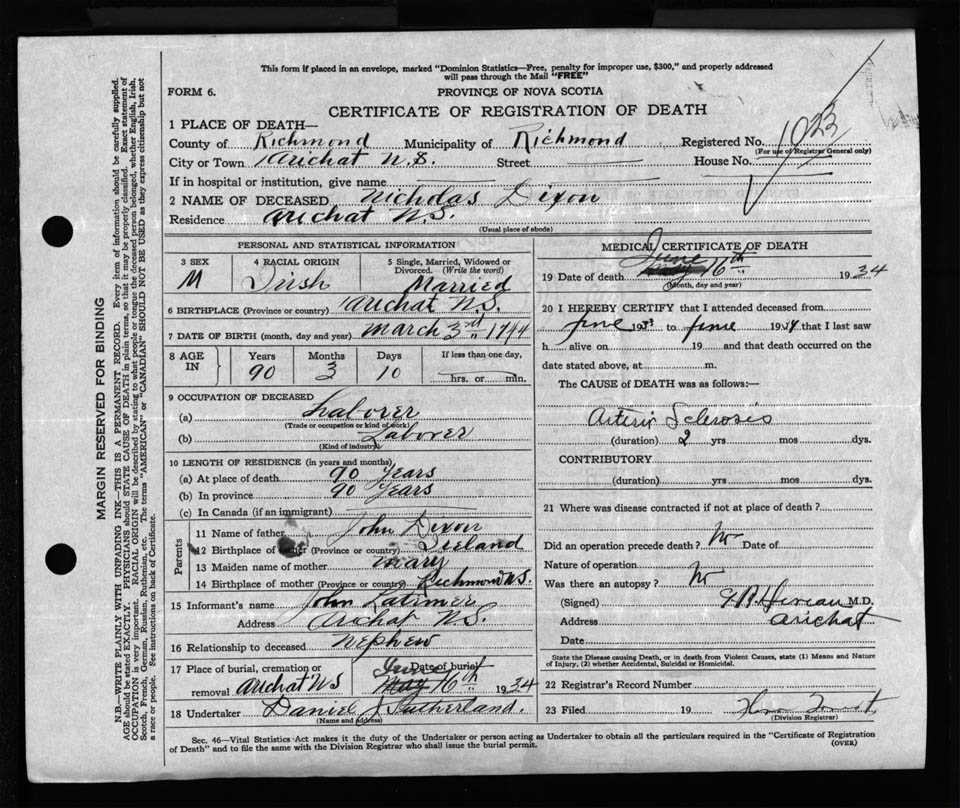 This form if placed in an envelope, marked "Dominion Statistics—Free, penalty for improper use, $300," and properly addressed
will pass through the Mail "FREE"
FORM 6.
PROVINCE OF NOVA SCOTIA
CERTIFICATE OF REGISTRATION OF DEATH
1 PLACE OF DEATH—
County of Richmond Municipality of Richmond Registered No. 1023
(For use of Registrar General only)
City or Town Arichat N.S. Street House No.
If in hospital or institution, give name
2 NAME OF DECEASED Nicholas Dixon
Residence Arichat N.S.
(Usual place of abode)
PERSONAL AND STATISTICAL INFORMATION
3 SEX M
4 RACIAL ORIGIN Irish
5 Single, Married, Widowed or Divorced. (Write the word) Married
6 BIRTHPLACE (Province or country) Arichat N.S.
7 DATE OF BIRTH (month, day and year) March 3rd 1844
8 AGE IN Years 90 Months 3 Days 10 If less than one day, hrs. or min.
9 OCCUPATION OF DECEASED
(a) Laborer
(Trade or occupation or kind of work)
(b) Laborer
(Kind of industry)
10 LENGTH OF RESIDENCE (in years and months)
(a) At place of death 90 Years
(b) In province 90 Years
(c) In Canada (if an immigrant)
Parents
11 Name of father John Dixon
12 Birthplace of father (Province or country) Ireland
13 Maiden name of mother Mary
14 Birthplace of mother (Province or country) Richmond N.S.
15 Informant's name John Latimer
Address Arichat N.S.
16 Relationship to deceased Nephew
17 Place of burial, cremation or removal Arichat NS Date of burial June 16th 1934
18 Undertaker Daniel J Sutherland.
(Name and address)
MEDICAL CERTIFICATE OF DEATH
19 Date of death June 16th 1934
(Month, day and year)
20 I HEREBY CERTIFY that I attended deceased from
June 193 to June 1934 that I last saw
h alive on 19 and that death occurred on the
date stated above, at m.
The CAUSE of DEATH was as follows:—
Arterio Sclerosis
(duration) 2 yrs mos dys.
CONTRIBUTORY
(duration) yrs mos dys.
21 Where was disease contracted if not at place of death?
Did an operation precede death? No Date of
Nature of operation
Was there an autopsy? No
(Signed) M.D.
Address Arichat
Date
State the Disease causing Death, or in death from Violent Causes, state (1) Means and
Nature of Injury, (2) whether Accidental, Suicidal or Homicidal.
22 Registrar's Record Number
23 Filed 19
(Division Registrar)
Sec. 46—Vital Statistics Act makes it the duty of the Undertaker or person acting as Undertaker to obtain all the particulars required in the "Certificate of Registration
of Death" and to file the same with the Division Registrar who shall issue the burial permit.
(OVER)
MARGIN RESERVED FOR BINDING
N.B.—WRITE PLAINLY WITH UNFADING INK—THIS IS A PERMANENT RECORD. Every item of information should be carefully supplied.
AGE should be stated EXACTLY. PHYSICIANS should STATE CAUSE OF DEATH in plain terms, so that it may be properly classified. Exact statement of
OCCUPATION is very important. RACIAL ORIGIN will be described by stating to what people or tongue the deceased person belonged, whether English, Irish,
Scotch, French, German, Russian, Ruthenian, etc. The terms "AMERICAN" or "CANADIAN" SHOULD NOT BE USED as they express citizenship but not
a race or people. See instructions on back of Certificate.